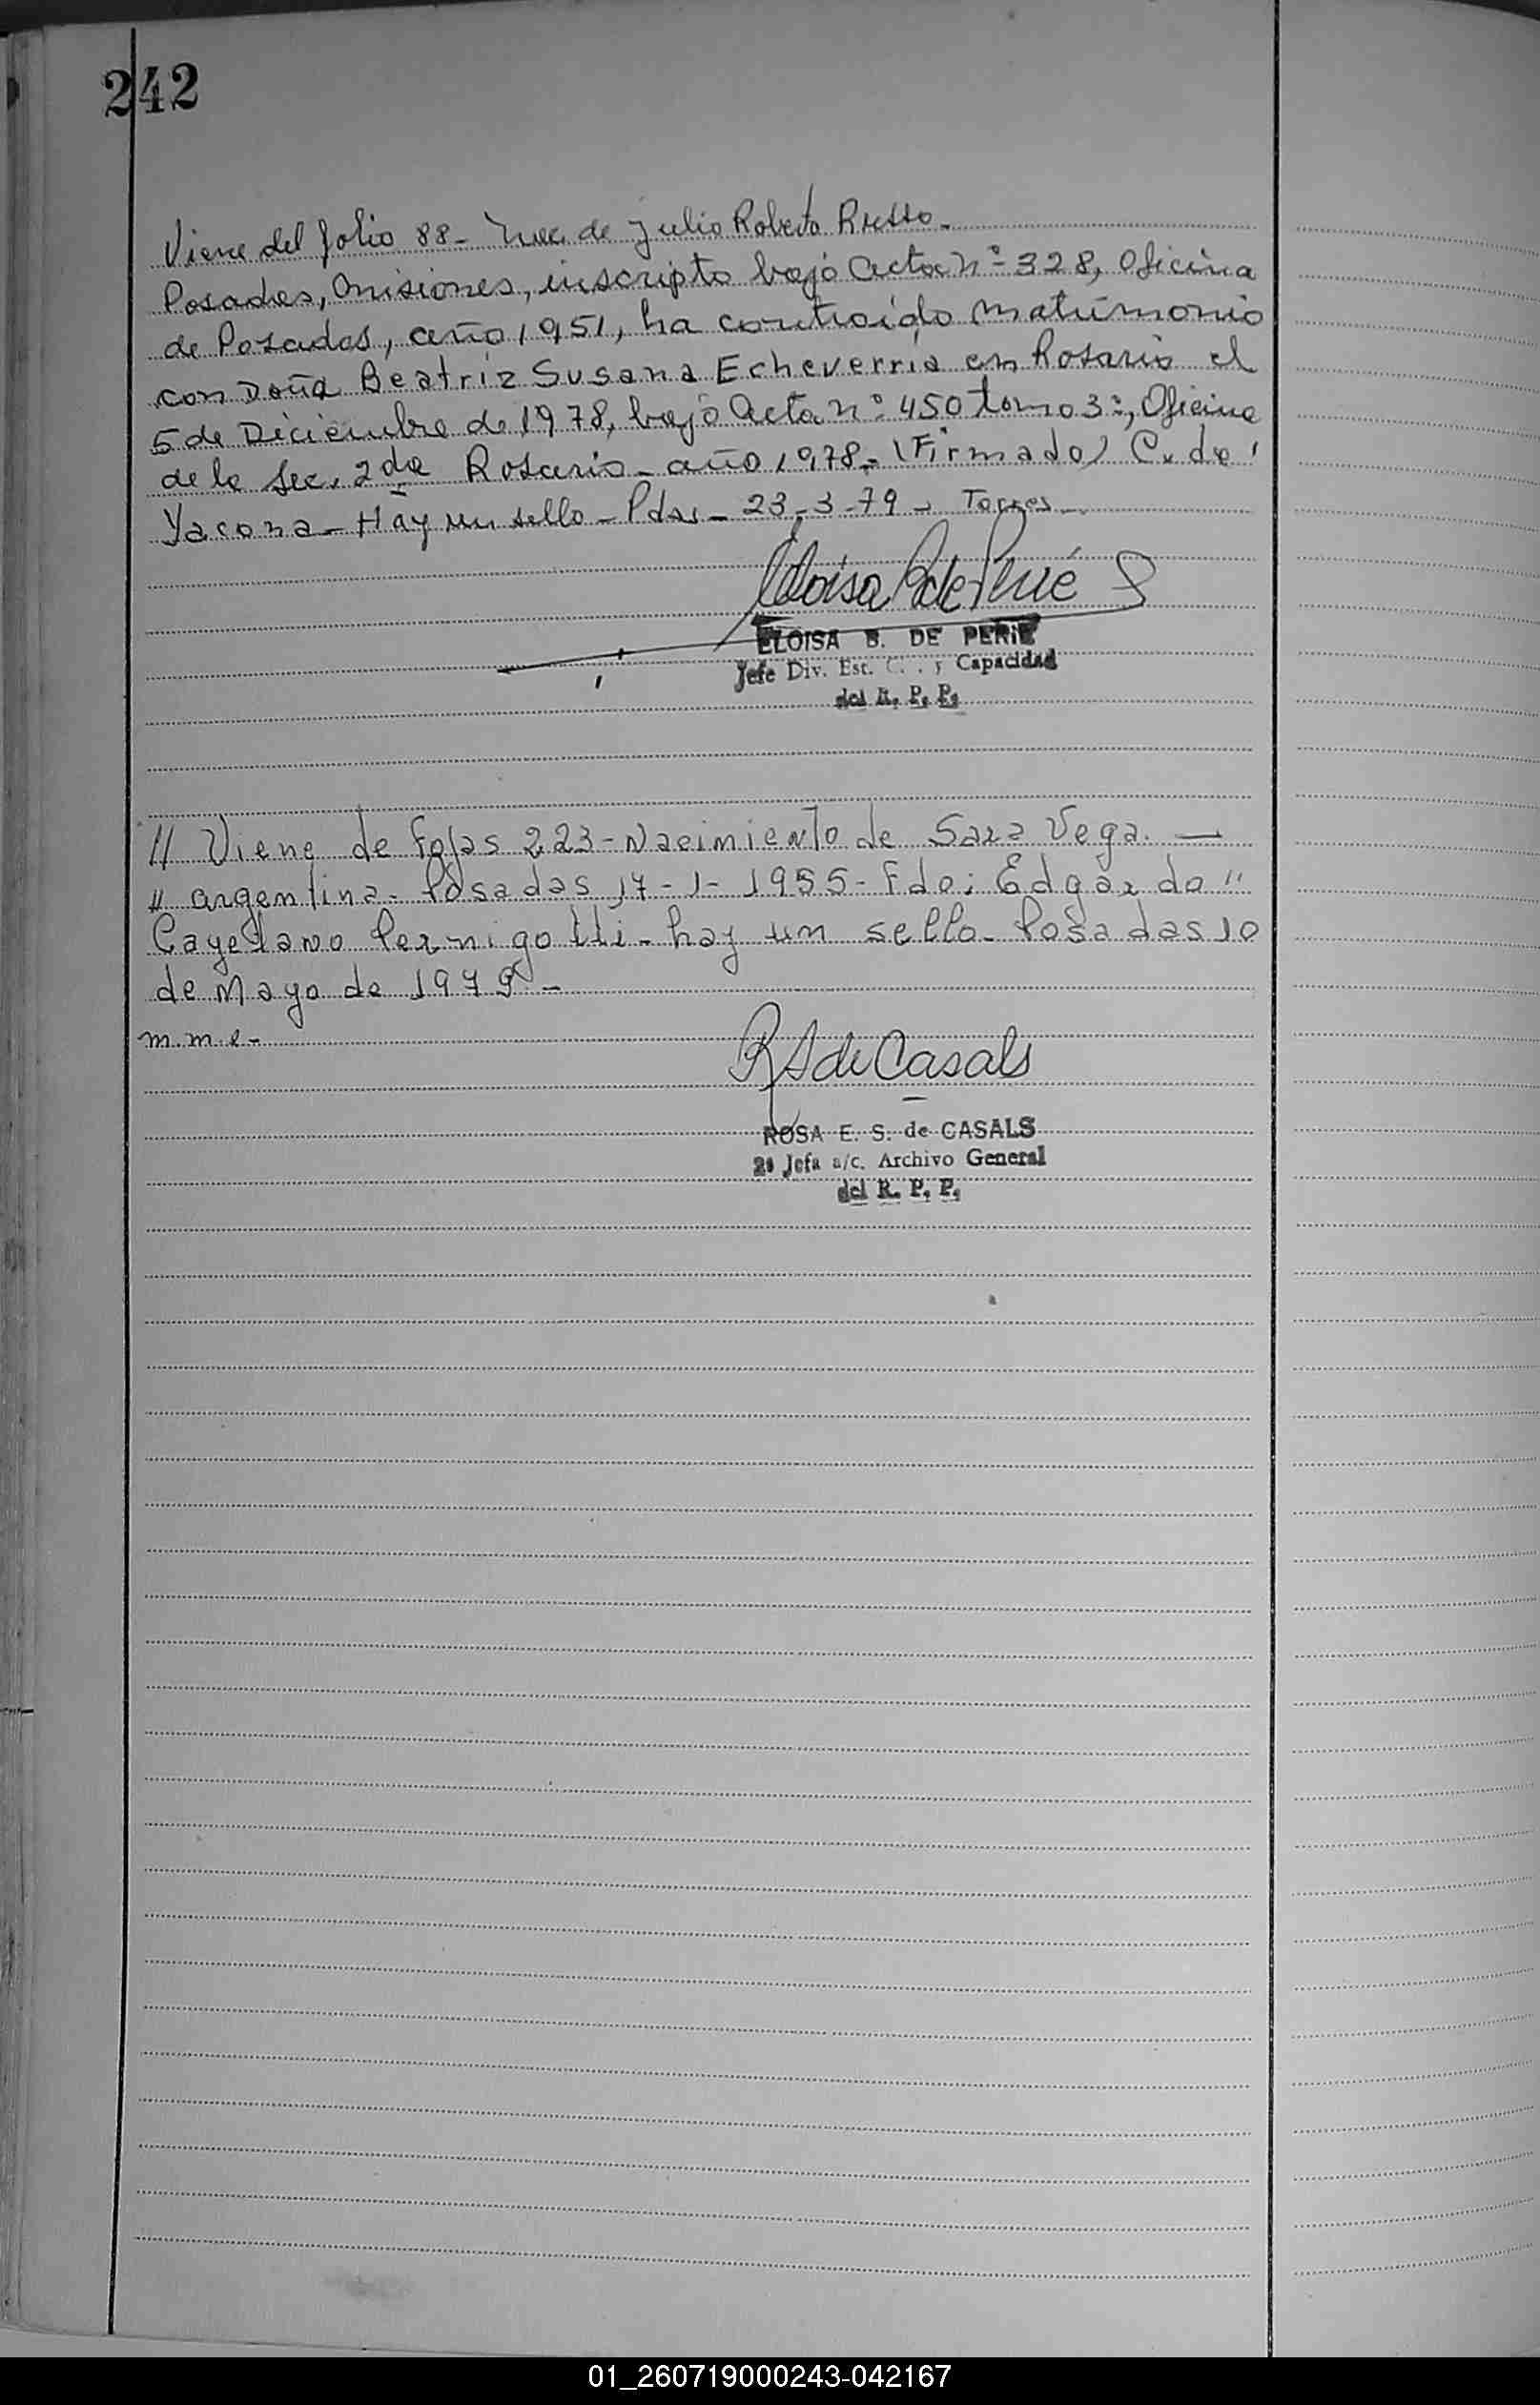 242
Viene del folio 88- Nac. de Julio Roberto Russo.
Posadas, Misiones, inscripto bajo acta nº 328, Oficina
de Posadas, año 1951, ha contraído matrimonio
con Doña Beatríz Susana Echeverría en Rosario el
5 de Diciembre de 1978, bajo Acta nº 450 tomo 3º, Oficina
de la Sec. 2da Rosario - año 1978.- (Firmado) C. de
Yacona - Hay un sello - Pdas - 23-3-79 - Torres
ELOISA B. DE PERIE
Jefe Div. Est. C. . y Capacidad
del R. P. P.
// Viene de Fojas 223 - Nacimiento de Sara Vega. —
" argentina - Posadas 17-1-1955 - Fdo: Edgardo "
Cayetano Pernigotti - hay un sello - Posadas 10
de Mayo de 1979 -
m.m.e-
RS de Casals
ROSA E. S. de CASALS
2ª Jefa a/c. Archivo General
del R. P. P.
01_260719000243-042167